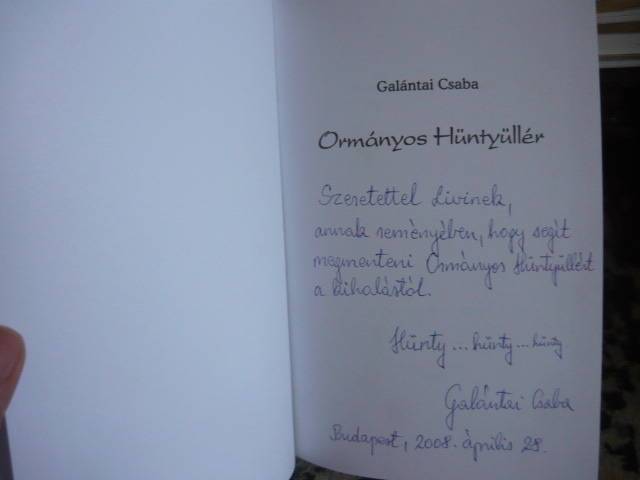 Galántai Csaba
Ormányos Hüntyüllér
Szeretettel Livinek,
annak reményében, hogy segít
megmenteni Ormányos Hüntyüllért
a kihalástól.
Hünty... hünty... hünty
Galántai Csaba
Budapest, 2008. április 28.